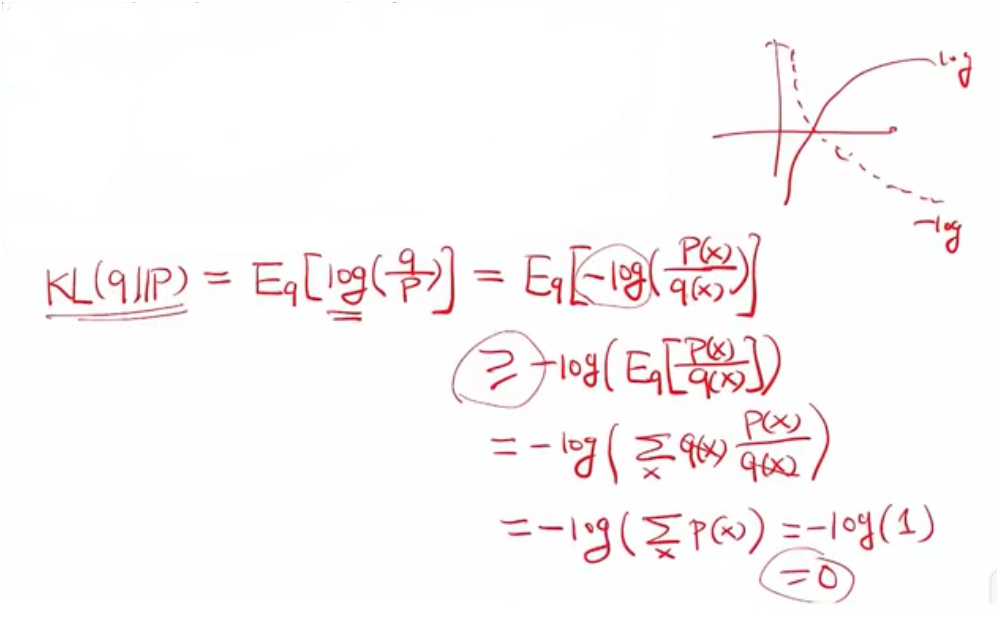 log
-log
KL(q||P) = Eq[log(q/P)] = Eq[-log(P(x)/q(x))]
≥ -log(Eq[P(x)/q(x)])
= -log(∑x q(x) P(x)/q(x))
= -log(∑x P(x)) = -log(1)
= 0